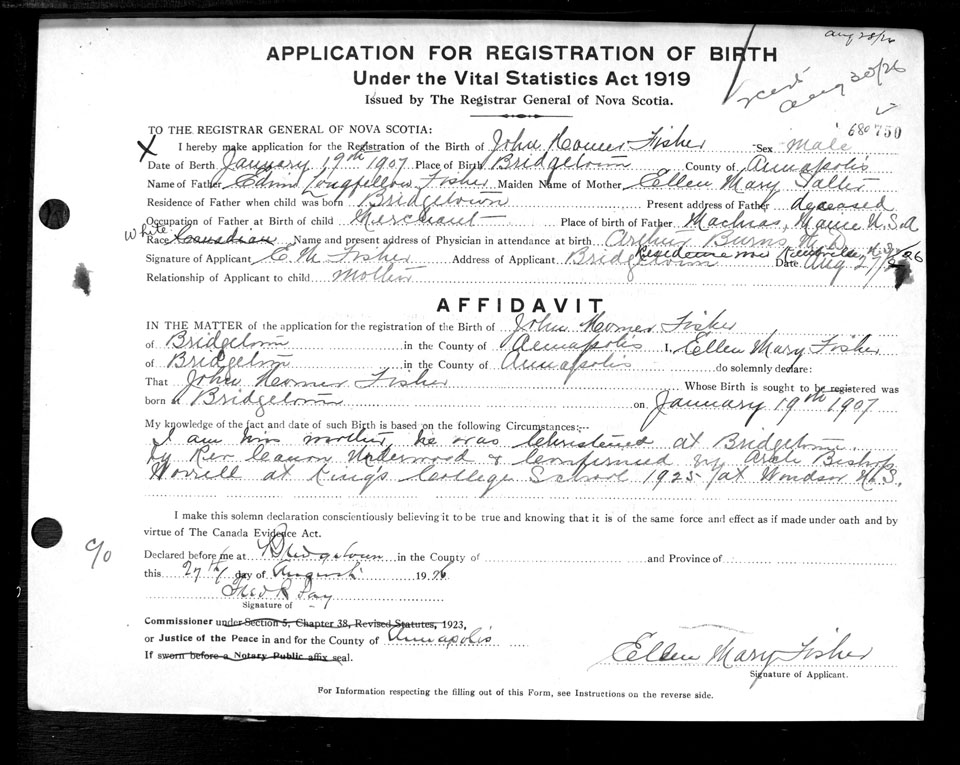 Aug 28/26
APPLICATION FOR REGISTRATION OF BIRTH
Under the Vital Statistics Act 1919
Issued by The Registrar General of Nova Scotia.
Aug 30/26
TO THE REGISTRAR GENERAL OF NOVA SCOTIA:
680 750
X I hereby make application for the Registration of the Birth of John Homer Fisher Sex Male
Date of Berth January 19th 1907 Place of Birth Bridgetown County of Annapolis
Name of Father Edwin Longfellow Fisher Maiden Name of Mother Ellen Mary Salter
Residence of Father when child was born Bridgetown Present address of Father deceased
Occupation of Father at Birth of child Merchant Place of birth of Father Machias, Maine U.S.A
White
Race Canadian Name and present address of Physician in attendance at birth Arthur Burns M.D.
Residence now Kentville N.S.
Signature of Applicant E. M. Fisher Address of Applicant Bridgetown Date Aug 27/26
Relationship of Applicant to child Mother
AFFIDAVIT
IN THE MATTER of the application for the registration of the Birth of John Homer Fisher
of Bridgetown in the County of Annapolis I, Ellen Mary Fisher
of Bridgetown in the County of Annapolis do solemnly declare:
That John Homer Fisher Whose Birth is sought to be registered was
born at Bridgetown on January 19th 1907
My knowledge of the fact and date of such Birth is based on the following Circumstances:
I am his mother, he was Christened at Bridgetown
by Rev Canon Underwood & Confirmed by Arch Bishop
Worrell at King's College School 1925 at Windsor N.S.
I make this solemn declaration conscientiously believing it to be true and knowing that it is of the same force and effect as if made under oath and by
virtue of The Canada Evidence Act.
Declared before me at Bridgetown in the County of and Province of
this 27th day of August 1926
Fred R Fay
Signature of
Commissioner under Section 5, Chapter 38, Revised Statutes, 1923,
or Justice of the Peace in and for the County of Annapolis
If sworn before a Notary Public affix seal.
Ellen Mary Fisher
Signature of Applicant.
For Information respecting the filling out of this Form, see Instructions on the reverse side.